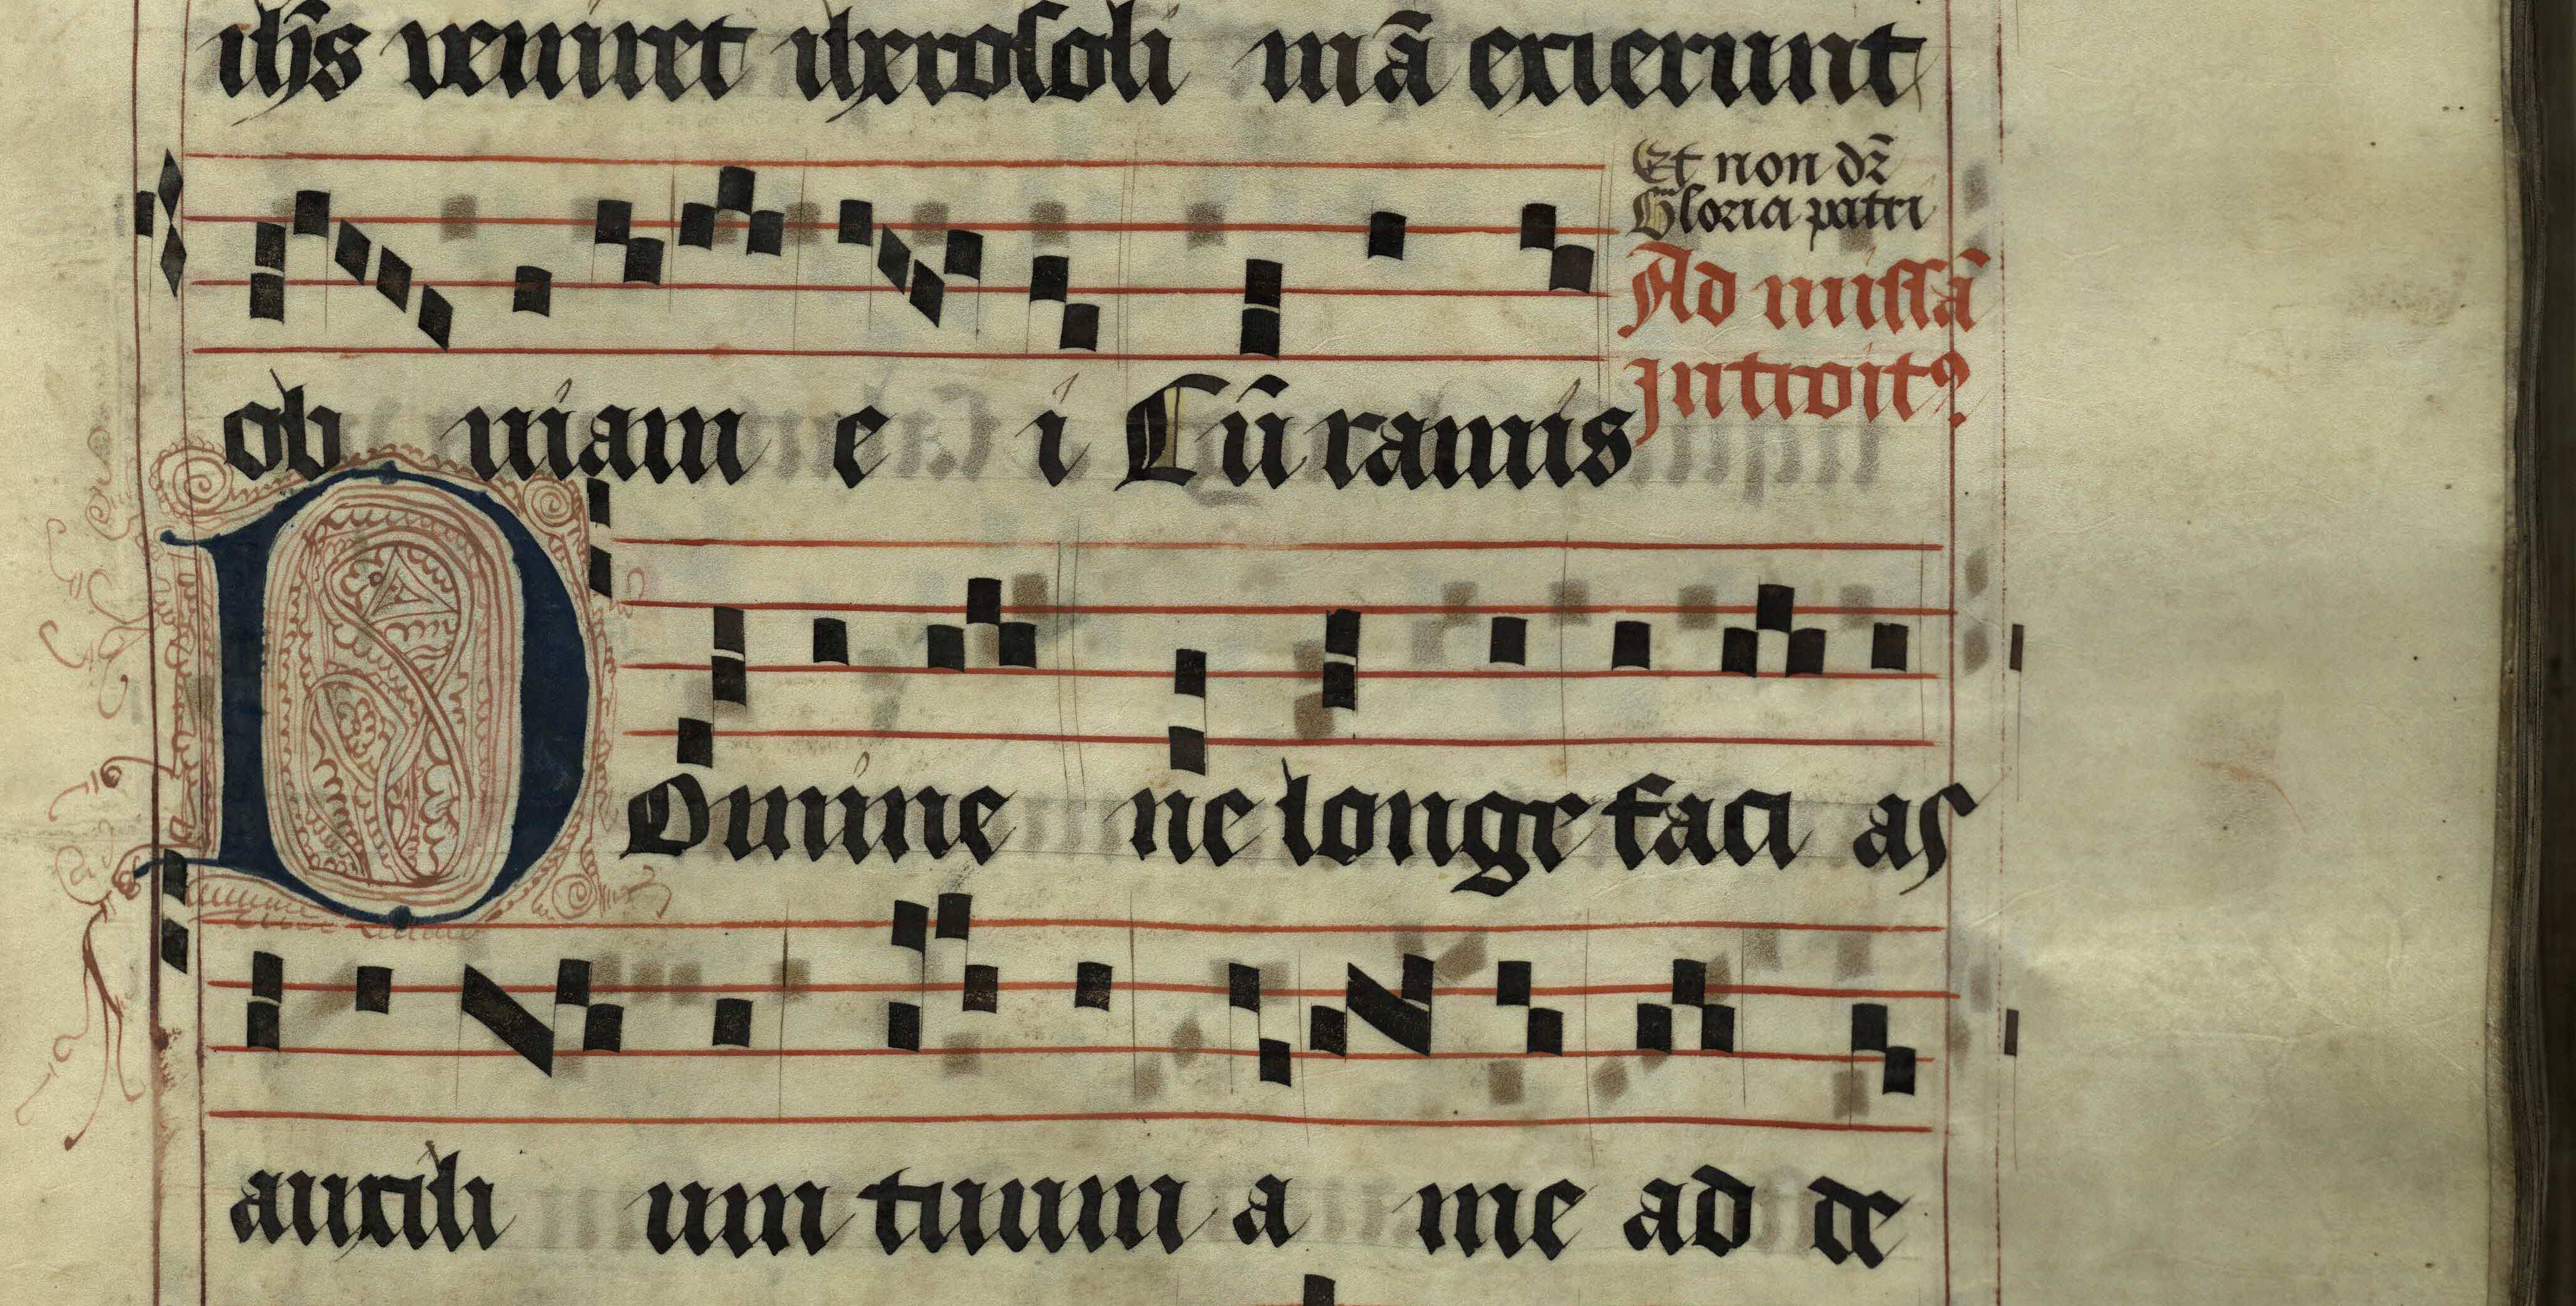 ihs̄ veniret iherosoli mā exierunt
Et non dr̄
Gloria patri
Ad missā
Introit⁹
ob uiam e i Cū ramis
Domine ne longe faci as
auxili um tuum a me ad de